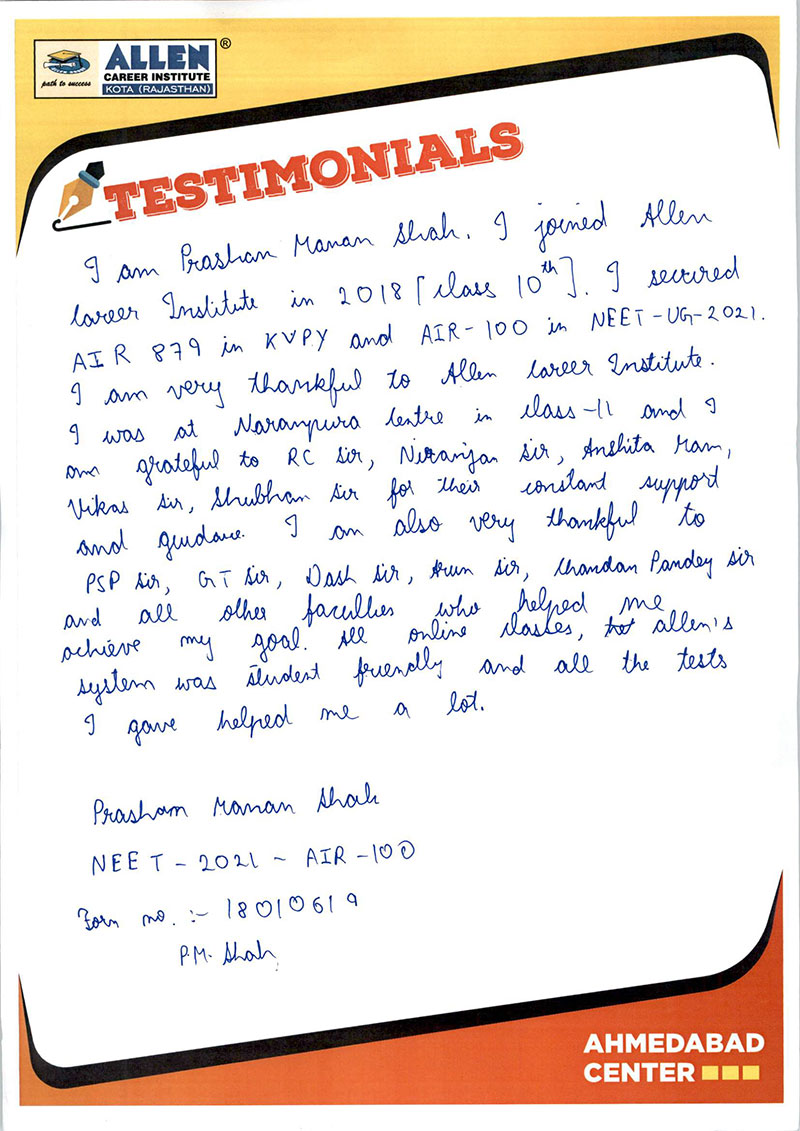 ALLEN ®
path to success
CAREER INSTITUTE
KOTA (RAJASTHAN)
TESTIMONIALS
I am Prashan Manan Shah. I joined Allen
Career Institute in 2018 [class 10th]. I secured
AIR 879 in KVPY and AIR-100 in NEET-UG-2021.
I am very thankful to Allen Career Institute.
I was at Naranpura Centre in class-11 and I
am grateful to RC sir, Niranjan sir, Anshita mam,
Vikas sir, Shubham sir for their constant support
and guidance. I am also very thankful to
PSP sir, GT sir, Dash sir, Arun sir, Chandan Pandey sir
and all other faculties who helped me
achieve my goal. All online classes, allen's
system was student friendly and all the tests
I gave helped me a lot.
Prasham Manan Shah
NEET - 2021 - AIR-100
Form no. :- 18010619
P.M. Shah
AHMEDABAD
CENTER